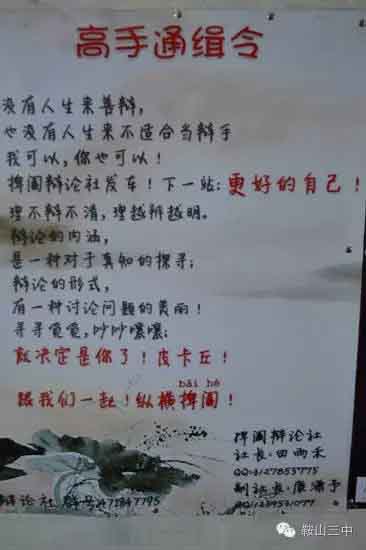 高手通缉令
没有人生来善辩，
也没有人生来不适合当辩手
我可以，你也可以！
捭阖辩论社发车！下一站：更好的自己！
理不辩不清，理越辩越明。
辩论的内涵，
是一种对于真知的探寻；
辩论的形式，
有一种讨论问题的美丽！
寻寻觅觅，吵吵嚷嚷；
就决定是你了！皮卡丘！
bǎi hé
跟我们一起！纵横捭阖！
捭阖辩论社
社长：田雨禾
副社长：
辩论社 群号
鞍山三中